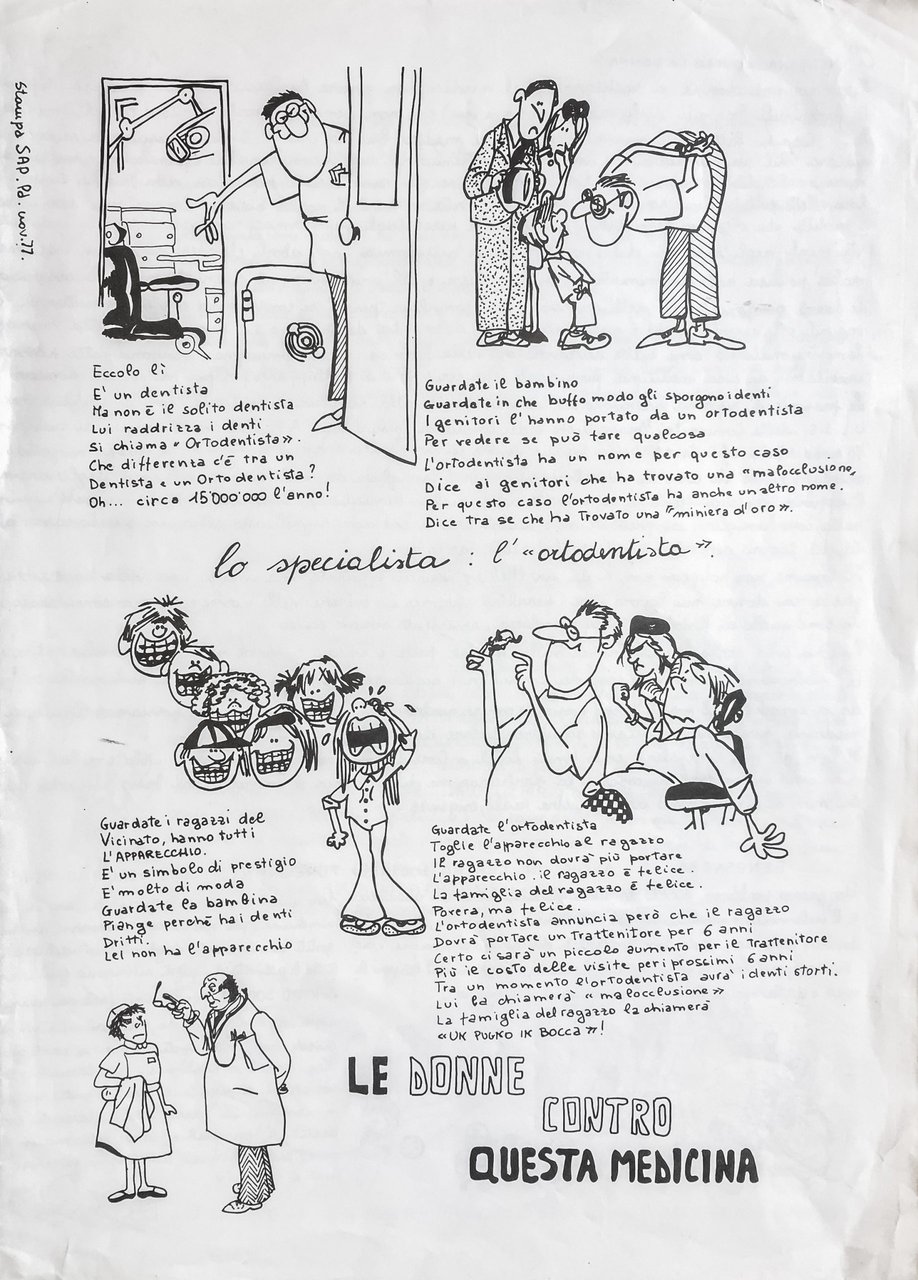 Stampa SAP. Pd. nov.77.
Eccolo lì
E' un dentista
Ma non è il solito dentista
Lui raddrizza i denti
Si chiama « Ortodentista».
Che differenza c'è tra un
Dentista e un Ortodentista?
Oh... circa 15'000'000 l'anno!
Guardate il bambino
Guardate in che buffo modo gli sporgono i denti
I genitori l'hanno portato da un ortodentista
Per vedere se può fare qualcosa
L'ortodentista ha un nome per questo caso
Dice ai genitori che ha trovato una «malocclusione,
Per questo caso l'ortodentista ha anche un altro nome.
Dice tra se che ha trovato una «miniera d'oro».
lo specialista : l'«ortodentista».
Guardate i ragazzi del
Vicinato, hanno tutti
L'APPARECCHIO.
E' un simbolo di prestigio
E' molto di moda
Guardate la bambina
Piange perchè ha i denti
Dritti.
Lei non ha l'apparecchio
Guardate l'ortodentista
Toglie l'apparecchio al ragazzo
Il ragazzo non dovrà più portare
L'apparecchio. il ragazzo è felice.
La famiglia del ragazzo è felice.
Povera, ma felice.
L'ortodentista annuncia però che il ragazzo
Dovrà portare un Trattenitore per 6 anni
Certo ci sarà un piccolo aumento per il trattenitore
Più il costo delle visite per i prossimi 6 anni
Tra un momento l'ortodentista avrà i denti storti.
Lui la chiamerà « malocclusione»
La famiglia del ragazzo la chiamerà
«UN PUGNO IN BOCCA»!
LE DONNE
CONTRO
QUESTA MEDICINA